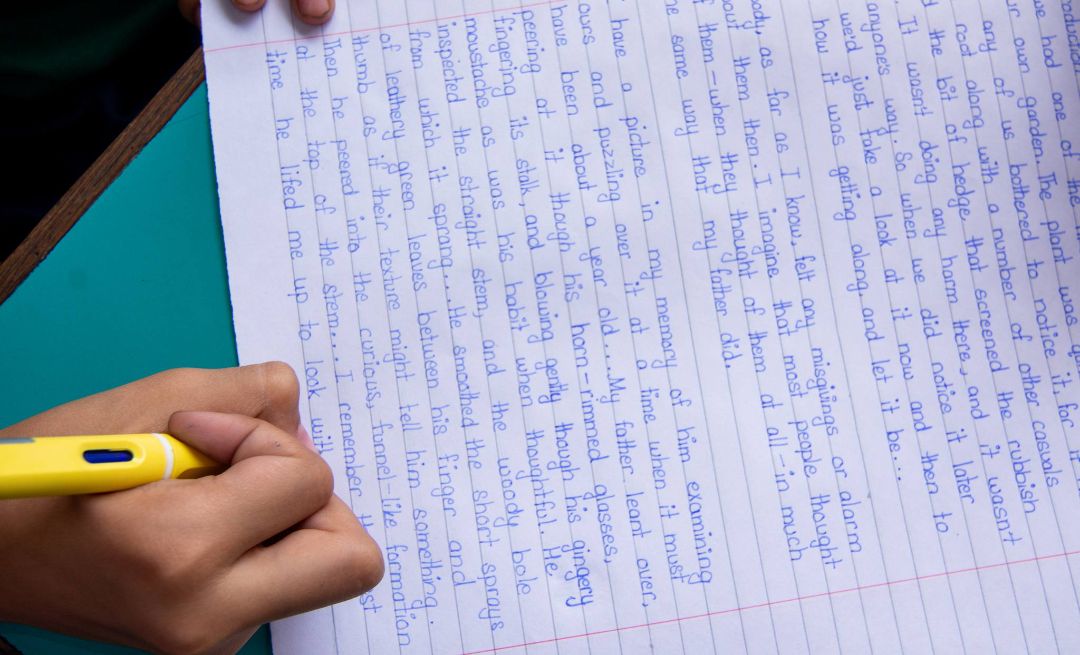 we had one of the
own garden. The plant was
any of us bothered to notice it, for
root along with a number of other casuals
the bit of hedge that screened the rubbish
It wasnt doing any harm there, and it wasn't
anyone's way. So when we did notice it later
we'd just take a look at it now and then to
how it was getting along and let it be....
body, as far as I know, felt any misgivings or alarm
them then. I imagine that most people thought
them - when they thought of them at all - in much
same way that my father did.
have a picture in my memory of him examining
ours and puzzling over it at a time when it must
have been about a year old....My father leant over,
peering at it though his horn-rimmed glasses,
fingering its stalk, and blowing gently though his gingery
moustache as was his habit when thoughtful. He
inspected the straight stem, and the woody bole
from which it sprang....He smoothed the short sprays
of leathery green leaves between his finger and
thumb as if their texture might tell him something.
Then he peered into the curious, funnel-like formation
at the top of the stem... I remember
time he lifed me up to look